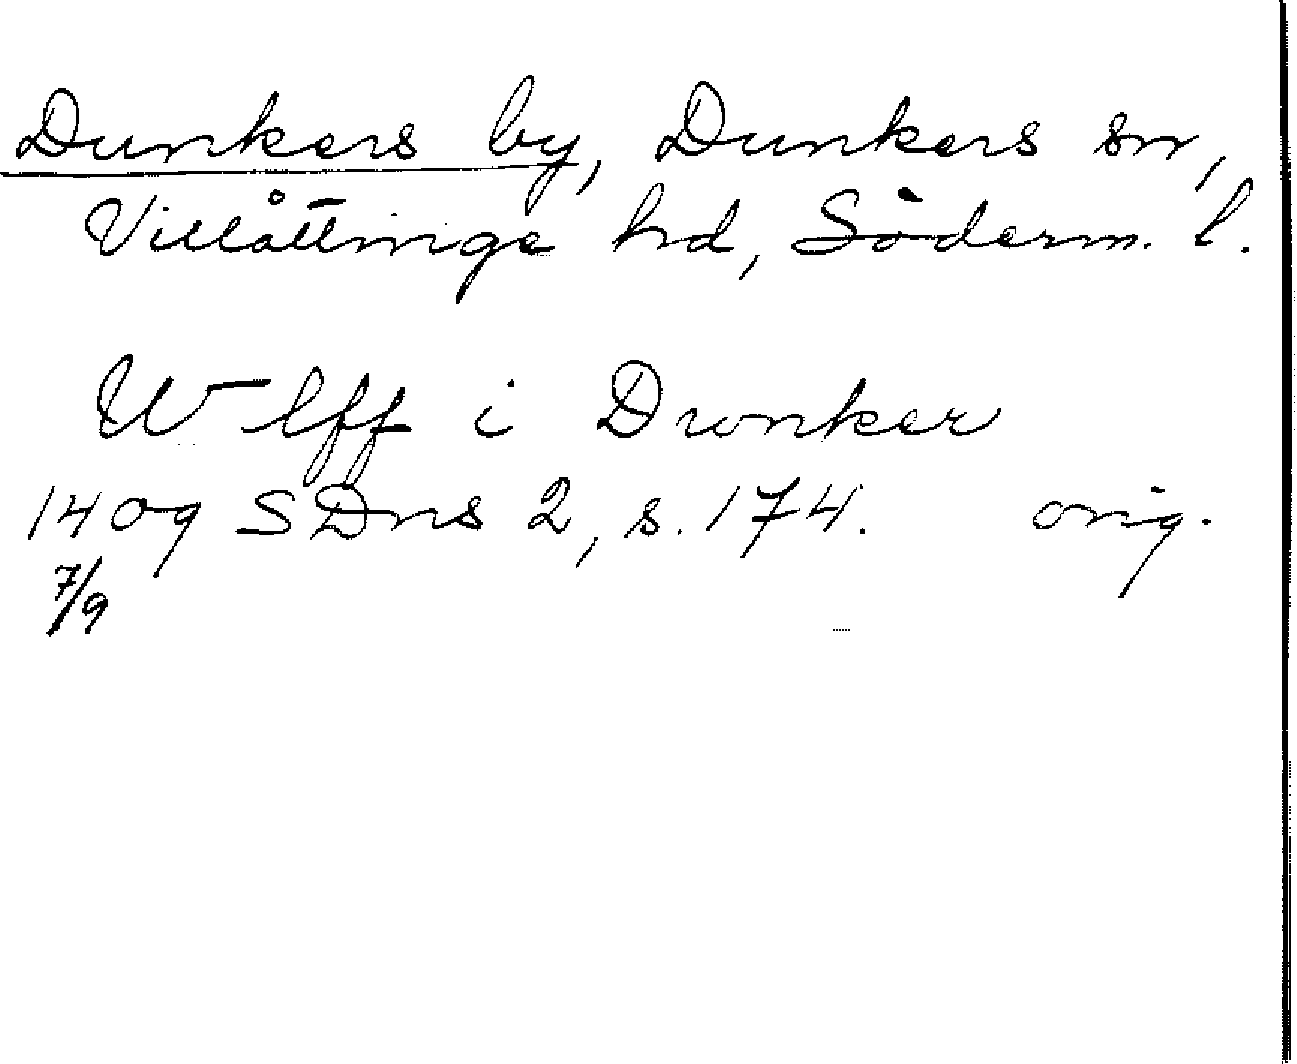 Dunkers by, Dunkers sn,
Villåttinge hd, Söderm. l.
Wlff i Dwnker
1409 SDns 2, s. 174. orig.
7/9